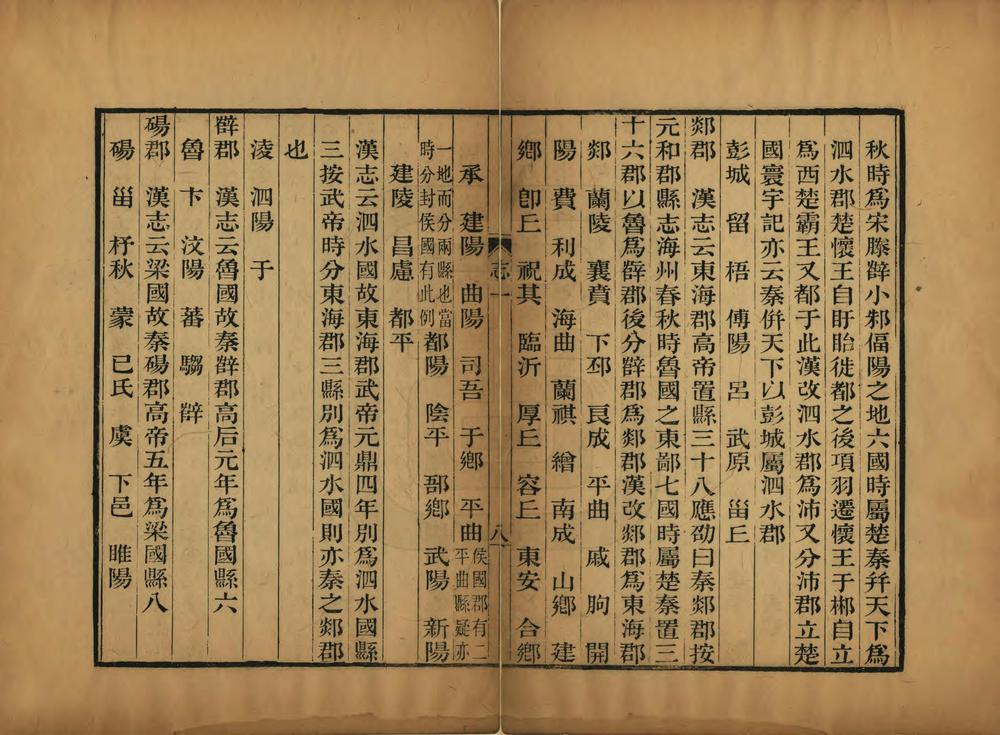 秋時爲宋滕辥小邾偪陽之地六國時屬楚秦幷天下爲
泗水郡楚懷王自盱眙徙都之後項羽遷懷王于郴自立
爲西楚霸王又都于此漢改泗水郡爲沛又分沛郡立楚
國寰宇記亦云秦倂天下以彭城屬泗水郡
彭城 留 梧 傅陽 呂 武原 甾丘
郯郡 漢志云東海郡高帝置縣三十八應劭曰秦郯郡按
元和郡縣志海州春秋時魯國之東鄙七國時屬楚秦置三
十六郡以魯爲辥郡後分辥郡爲郯郡漢改郯郡爲東海郡
郯 蘭陵 襄賁 下邳 良成 平曲 戚 朐 開
陽 費 利成 海曲 蘭祺 繒 南成 山鄉 建
鄉 卽丘 祝其 臨沂 厚丘 容丘 東安 合鄉
志一 八
承 建陽 曲陽 司吾 于鄉 平曲侯國郡有二平曲縣疑亦
一地而分兩縣也當時分封侯國有此例都陽 陰平 郚鄉 武陽 新陽
建陵 昌慮 都平
漢志云泗水國故東海郡武帝元鼎四年別爲泗水國縣
三按武帝時分東海郡三縣別爲泗水國則亦秦之郯郡
也
淩 泗陽 于
辥郡 漢志云魯國故秦辥郡高后元年爲魯國縣六
魯 卞 汶陽 蕃 騶 辥
碭郡 漢志云梁國故秦碭郡高帝五年爲梁國縣八
碭 甾 杼秋 蒙 已氏 虞 下邑 睢陽